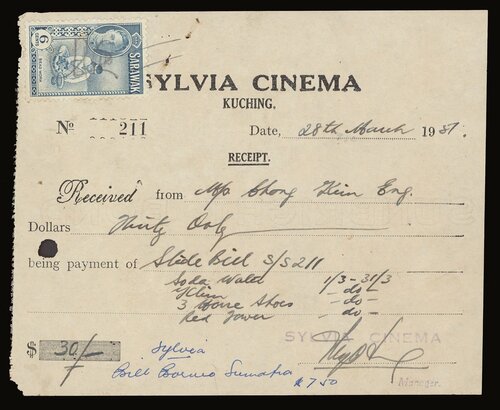 SARAWAK
6 CENTS
SYLVIA CINEMA
KUCHING.
No 211
Date, 28th March 1951.
RECEIPT.
Received from M/s Chong Kim Eng.
Dollars Thirty Only
being payment of Slide Bill S/S211
Soda Water 1/3 - 31/3
Klim - do -
3 Horse Shoes - do -
Red Tower - do -
SYLVIA CINEMA
$ 30/-
Manager.
Sylvia
Bill Borneo Sumatra
$ 7.50